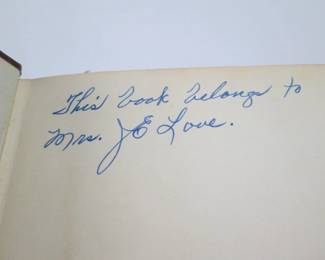 This book belongs to
Mrs. JE Love.